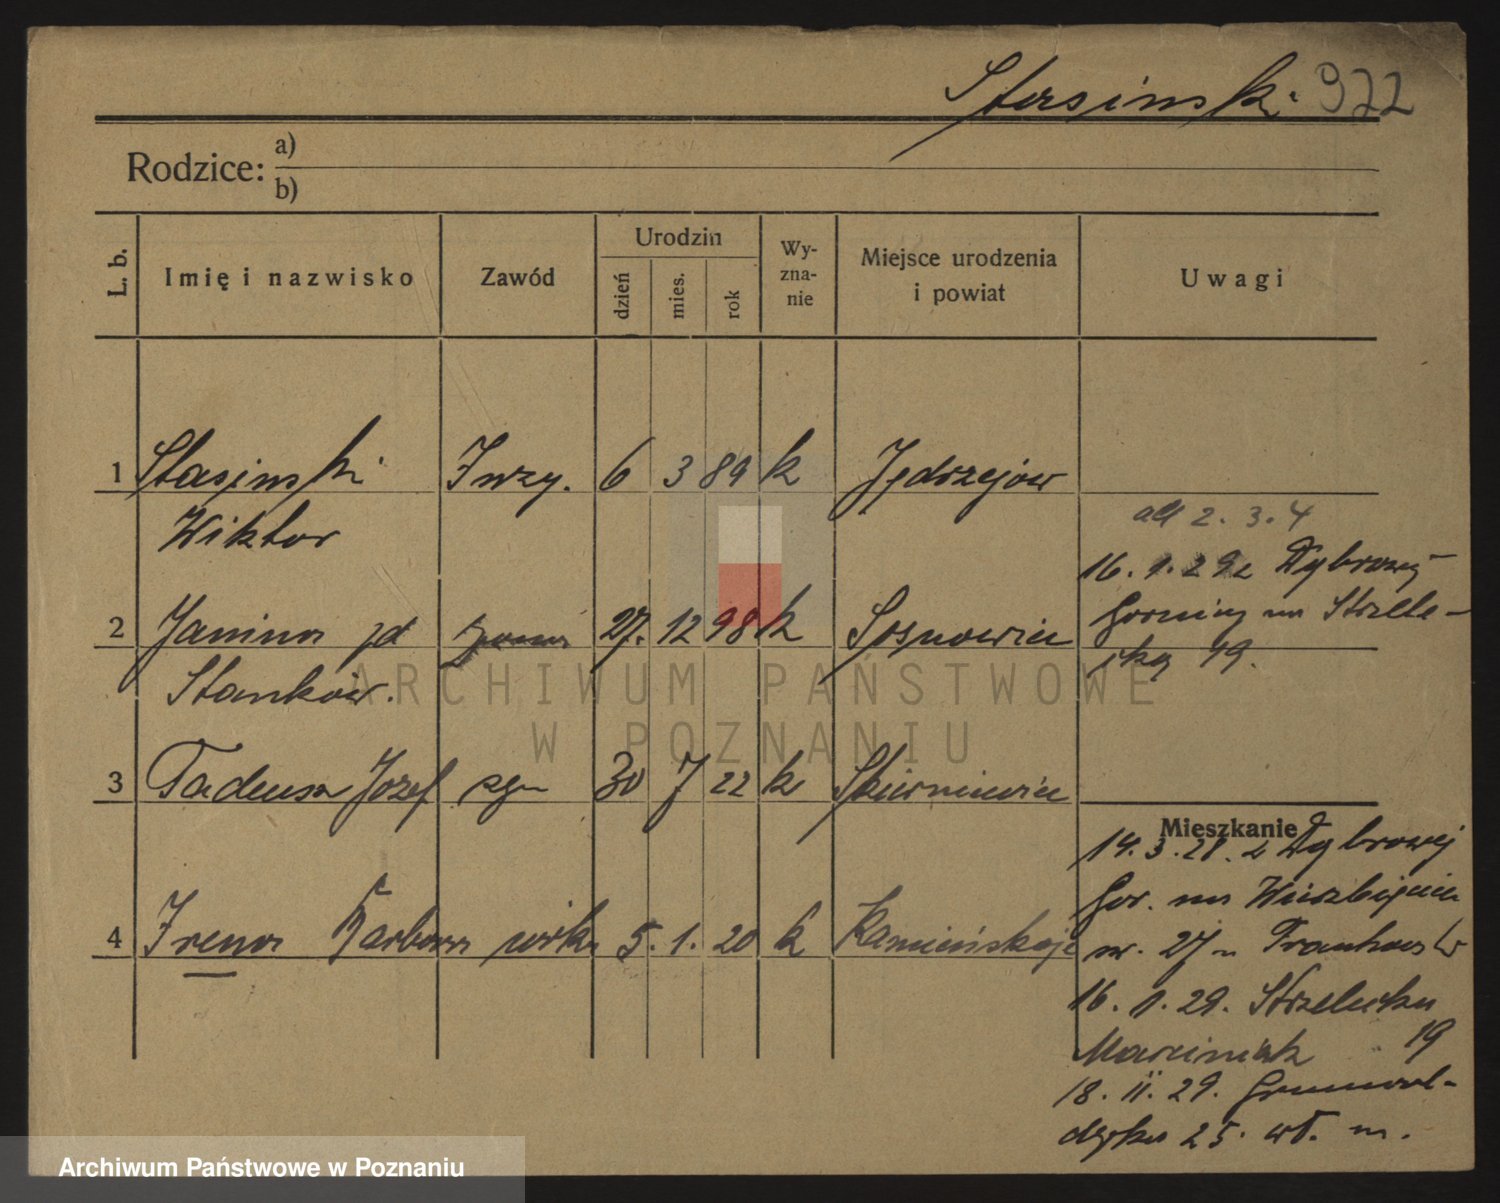 Stasinski 922
Rodzice: a)
b)
L. b. Imię i nazwisko Zawód Urodzin dzień mies. rok Wy-zna-nie Miejsce urodzenia i powiat Uwagi
1 Stasinski Inży. 6 3 89 k Jędrzejow
Wiktor
all 2. 3. 4
16. 1. 29 z Dąbrowy
2 Janina zd 27. 12 98 k Sosnowiec
Górniczej na Strzele-
Stanków.
cką 19.
3 Tadeusz Józef syn 30 7 22 k Skierniewice
Mieszkanie
14. 3. 28. z Dąbrowej
Gór. na Wierzbięcice
4 Irena Barbara córka 5. 1. 20 k Kamieńskoje
nr. 27 u
16. 1. 29. Strzelecka
Marciniak 19
18. II. 29. Grunwal-
dzka 25. wł. m.
ARCHIWUM PAŃSTWOWE
W POZNANIU
Archiwum Państwowe w Poznaniu